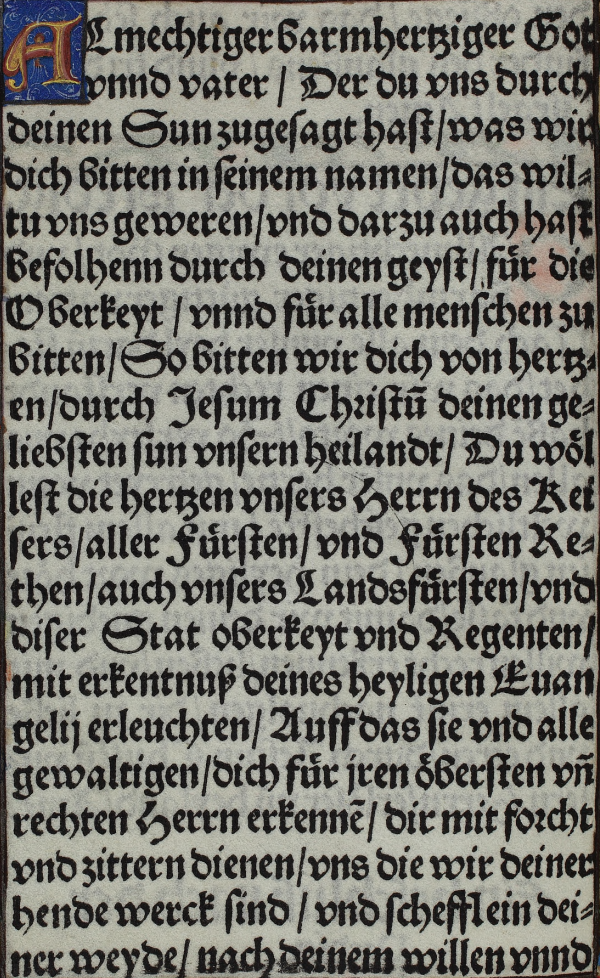 ALmechtiger barmhertziger Got
vnnd vater / Der du vns durch
deinen Sun zugesagt hast/was wir
dich bitten in seinem namen/das wil-
tu vns geweren/vnd darzu auch hast
befolhenn durch deinen geyst/ für die
Oberkeyt / vnnd für alle menschen zu
bitten/So bitten wir dich von hertz-
en/durch Jesum Christū deinen ge-
liebsten sun vnsern heilandt/ Du wöl
lest die hertzen vnsers Herrn des Kei
sers/aller Fürsten/ vnd Fürsten Re-
then/auch vnsers Landsfürsten/vnd
diser Stat oberkeyt vnd Regenten/
mit erkentnuß deines heyligen Euan
gelij erleuchten/ Auff das sie vnd alle
gewaltigen/dich für jren öbersten vñ
rechten Herrn erkennē/ dir mit forcht
vnd zittern dienen/vns die wir deiner
hende werck sind / vnd schefflein dei-
ner weyde/ nach deinem willen vnnd